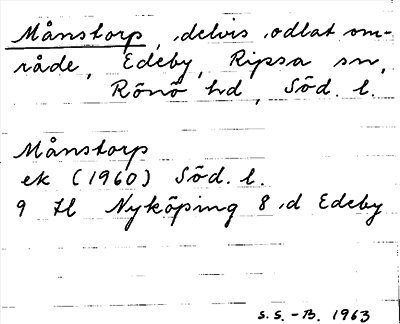 Månstorp, delvis odlat om-
råde, Edeby, Ripsa sn,
Rönö hd, Söd. l.
Månstorp
ek (1960) Söd. l.
9 H Nyköping 8 d Edeby
S.S.-B. 1963